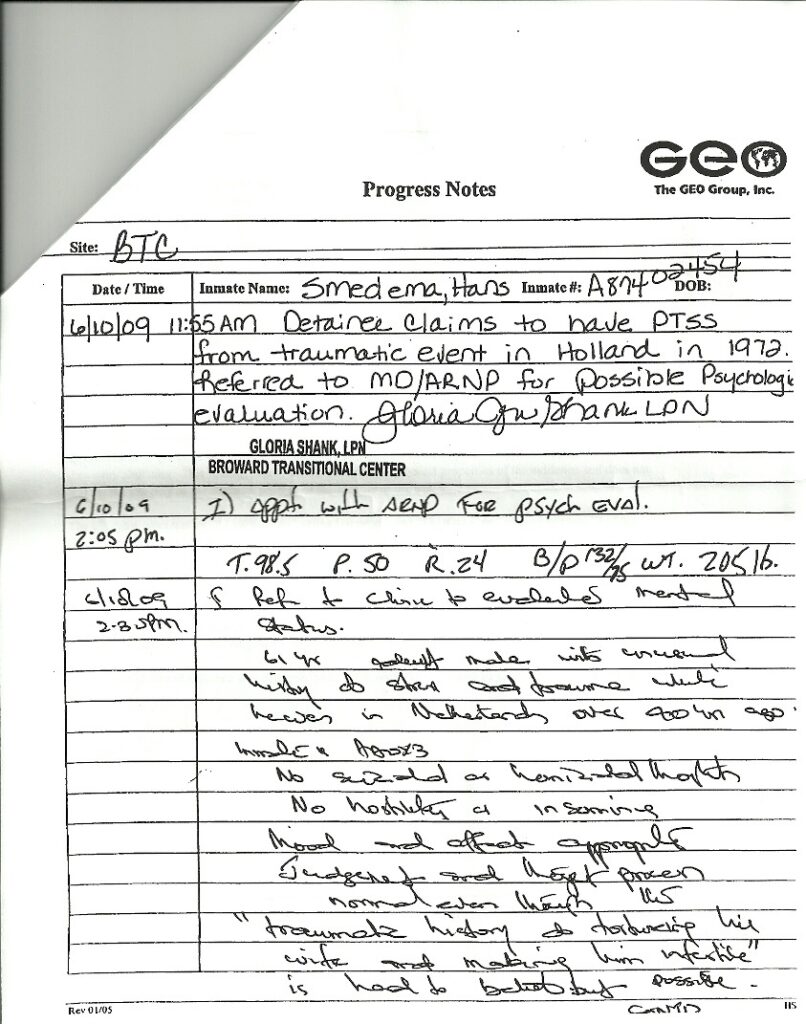 GEO
The GEO Group, Inc.
Progress Notes
Site: BTC
Date / Time Inmate Name: Smedema, Hans Inmate #: A87402454 DOB:
6/10/09 11:55AM Detainee Claims to have PTSS
from traumatic event in Holland in 1972.
Referred to MD/ARNP for possible Psychologic
evaluation. Gloria Shank LPN
GLORIA SHANK, LPN
BROWARD TRANSITIONAL CENTER
6/10/09 1) Appt with ARNP For psych EVAl.
2:05 pm.
T. 98.5 P. 50 R. 24 B/P 132/75 WT. 205 lb.
6/10/09 Refer to clinic to mental
2:35PM. Status.
61 yr male with unusual
history of stress and trauma while
in Netherlands over yrs ago.
Inmate AAOX3
No suicidal or homicidal thoughts
No hostility or
Mood and affect
Judgement and thought process
normal even though his
"traumatic history of torturing his
wife and making him infertile"
is hard to but possible.
CONT'D
Rev 01/05 HS